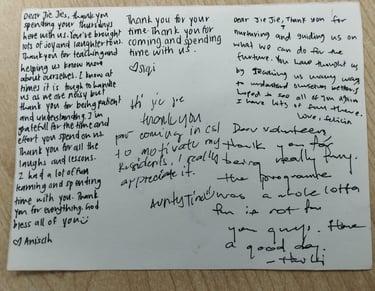 Dear Jie Jies, thank you
spending your Thursdays
here with us. You've brought
lots of joy and laughter to us.
Thank you for teaching and
helping us know more
about ourselves. I know at
times it is tough to handle
us as we are noisy but
thank you for being patient
and understanding. I am
grateful for the time and
effort you spend on us.
Thank you for all the
laughs and lessons.
I had a lot of fun
learning and spending
time with you. Thank
you for everything. God
bless all of you
♡ Anisah
Thank you for your
time thank you for
coming and spending
time with us.
Hi jie jie
thank you
for coming in CSL
to motivate my
residents. I really
appreciate it.
Aunty Tina
Dear Jie Jie, Thank you for
nurturing and guiding us on
what we can do for the
furture. You have thought us
by treating us many way
to understand ourselves better.
hoped to see all of you again
I have lots of fun there.
love, Felicia
Dear volunteers,
thank you for
being really funy.
the programe
was a whole lotta
fun is not for
you guys. Have
a good day.